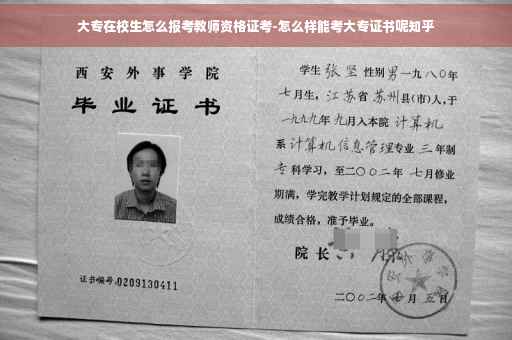 大专在校生怎么报考教师资格证考-怎么样能考大专证书呢知乎
西安外事学院
毕业证书
证书编号:0209130411
学生 张坚 性别 男 一九八〇年
七月生，江苏省 苏州县(市)人，于
一九九九年 九月入本院 计算机
系 计算机信息管理专业 三年制
专科学习，至二〇〇二年 七月修业
期满，学完教学计划规定的全部课程，
成绩合格，准予毕业。
院长
二〇〇二年 月 五日